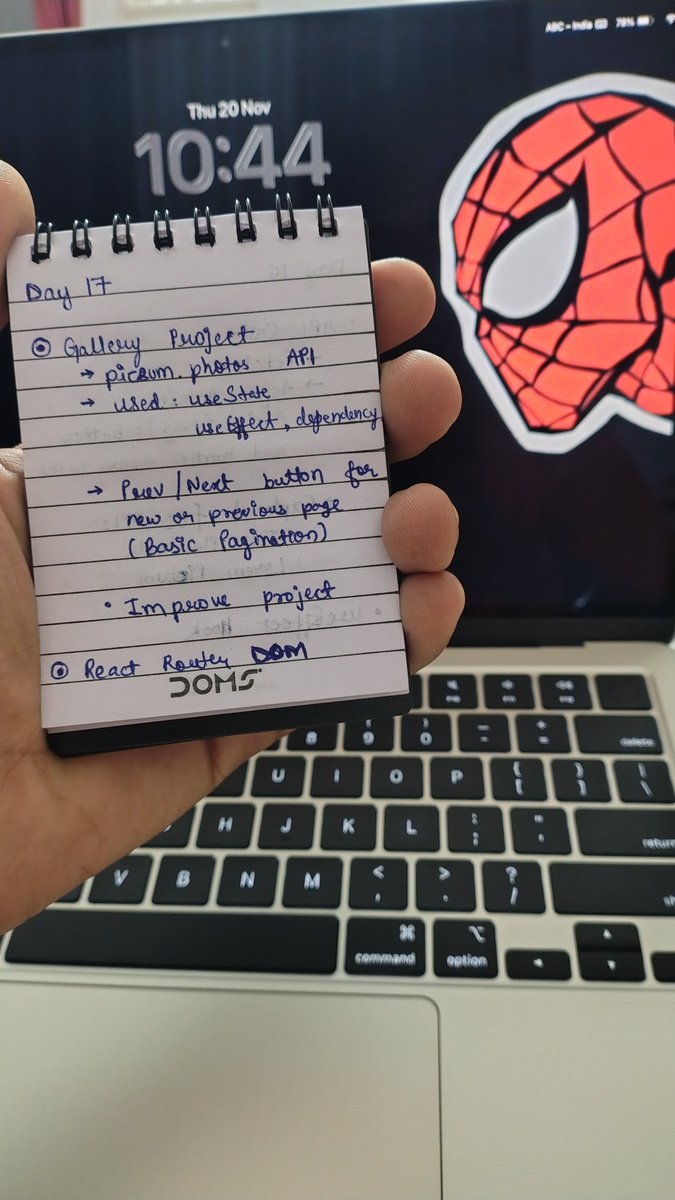 ABC – India 78%
Thu 20 Nov
10:44
Day 17
Gallery Project
→ picsum.photos API
→ used : useState
useEffect, dependency
→ Prev/Next button for
new or previous page
(Basic Pagination)
• Improve project
React Router DOM
DOMS
F10 F11 F12
8 ( 9 ) 0 _ - + = delete
U I O P { [ } ] | \
H J K L : ; " ' return
V B N M < , > . ? /
⌘ ⌥
command option